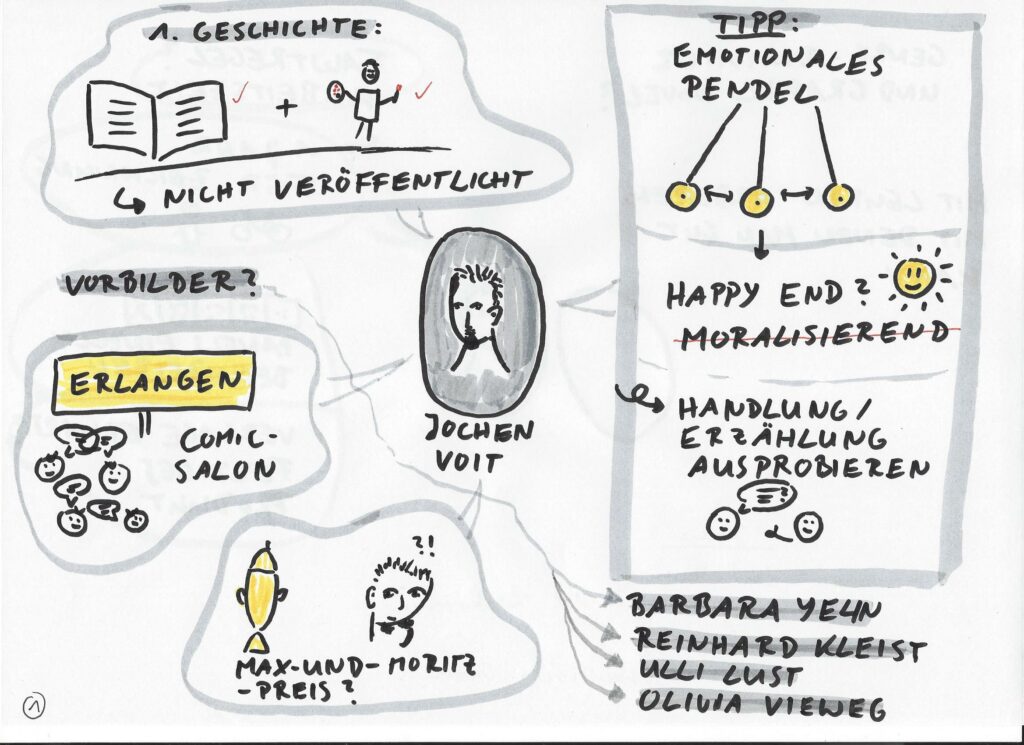 1. GESCHICHTE:
NICHT VERÖFFENTLICHT
TIPP:
EMOTIONALES
PENDEL
HAPPY END?
MORALISIEREND
HANDLUNG/
ERZÄHLUNG
AUSPROBIEREN
VORBILDER?
ERLANGEN
COMIC-
SALON
JOCHEN
VOIT
?!
MAX-UND-MORITZ
-PREIS?
BARBARA YELIN
REINHARD KLEIST
ULLI LUST
OLIVIA VIEWEG
1